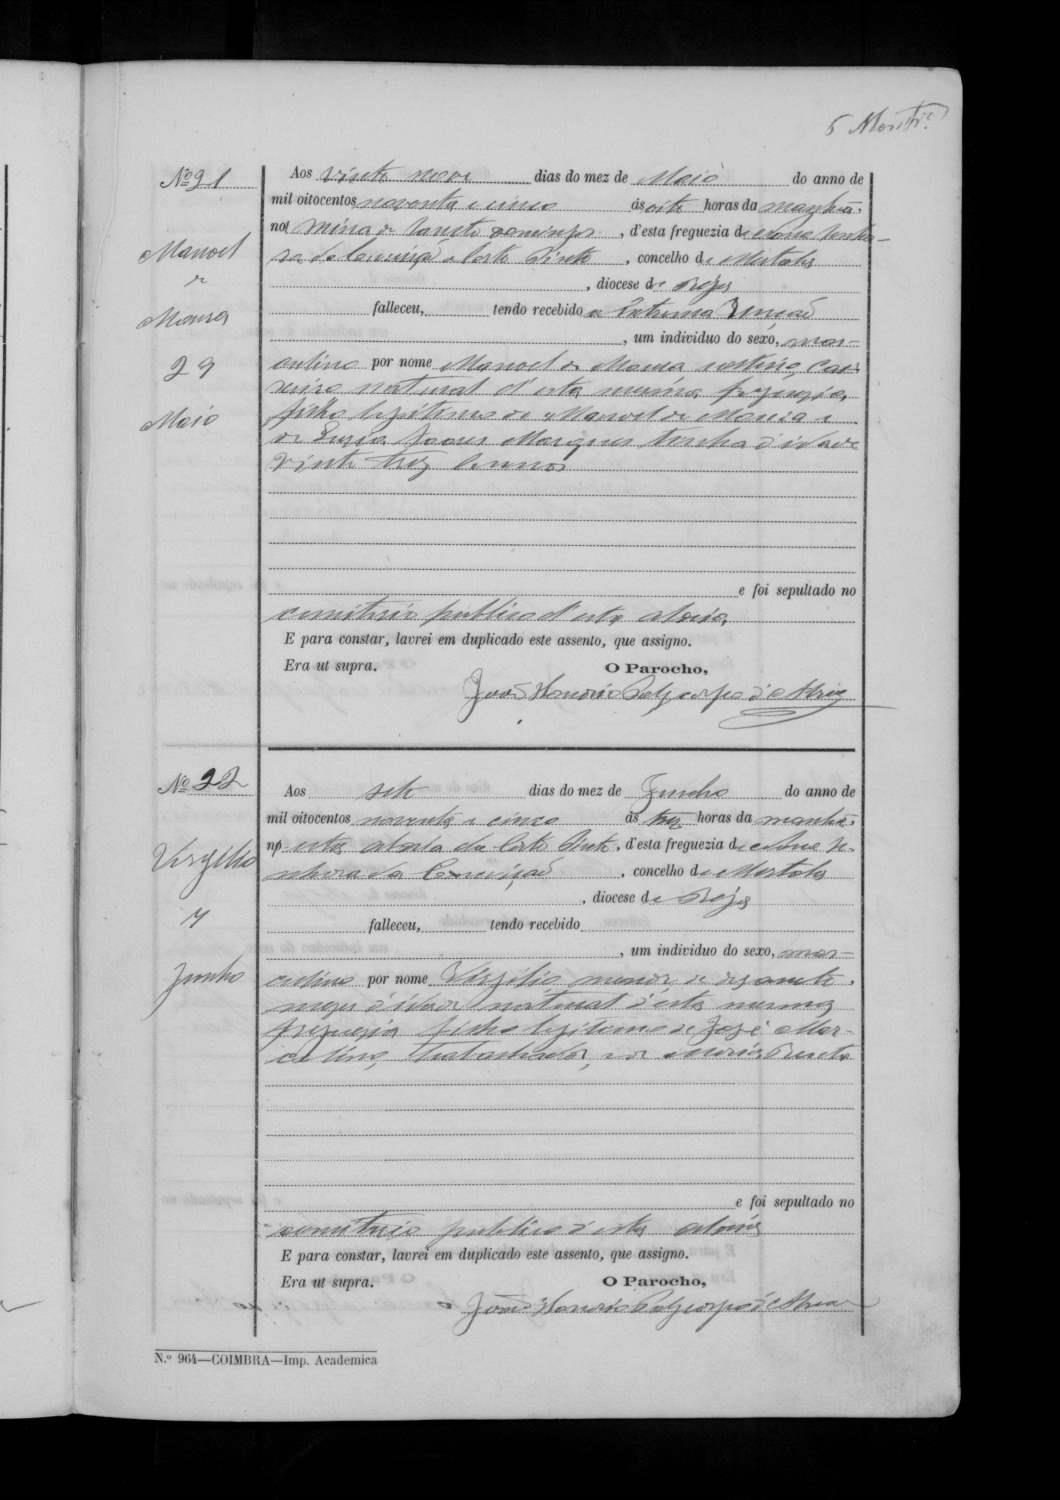 Nº 21
Aos vinte nove dias do mez de Maio do anno de
mil oitocentos noventa e cinco ás oito horas da manhã,
na Mina de Santo Domingos, d'esta freguezia de Nossa Senho-
ra da Conceição e Corte Pinto, concelho de Mertola
, diocese de Beja
falleceu, tendo recebido a Extrema Unção
, um individuo do sexo, mas-
culino por nome Manoel de Moura solteiro,
natural d'esta mesma freguezia,
filho legitimo de Manoel de Moura e
de Luzia Marques tinha d'idade
vinte trez annos
e foi sepultado no
cemiterio publico d'esta aldeia,
E para constar, lavrei em duplicado este assento, que assigno.
Era ut supra. O Parocho,
João Honorio Polycarpo d'
Manoel
de
Moura
29
Maio
Nº 22
Aos sete dias do mez de Junho do anno de
mil oitocentos noventa e cinco ás trez horas da manhã,
n'esta aldeia da Corte Pinto, d'esta freguezia de Nossa Se-
nhora da Conceição, concelho de Mertola
, diocese de Beja
falleceu, tendo recebido
, um individuo do sexo, mas-
culino por nome Virgilio, menor, de
mezes d'idade natural d'esta mesma
freguezia filho legitimo de José Mar-
celino, trabalhador, e de Maria Bento
e foi sepultado no
cemiterio publico d'esta aldeia
E para constar, lavrei em duplicado este assento, que assigno.
Era ut supra. O Parocho,
João Honorio Polycarpo d'
Virgilio
7
Junho
N.º 964—COIMBRA—Imp. Academica